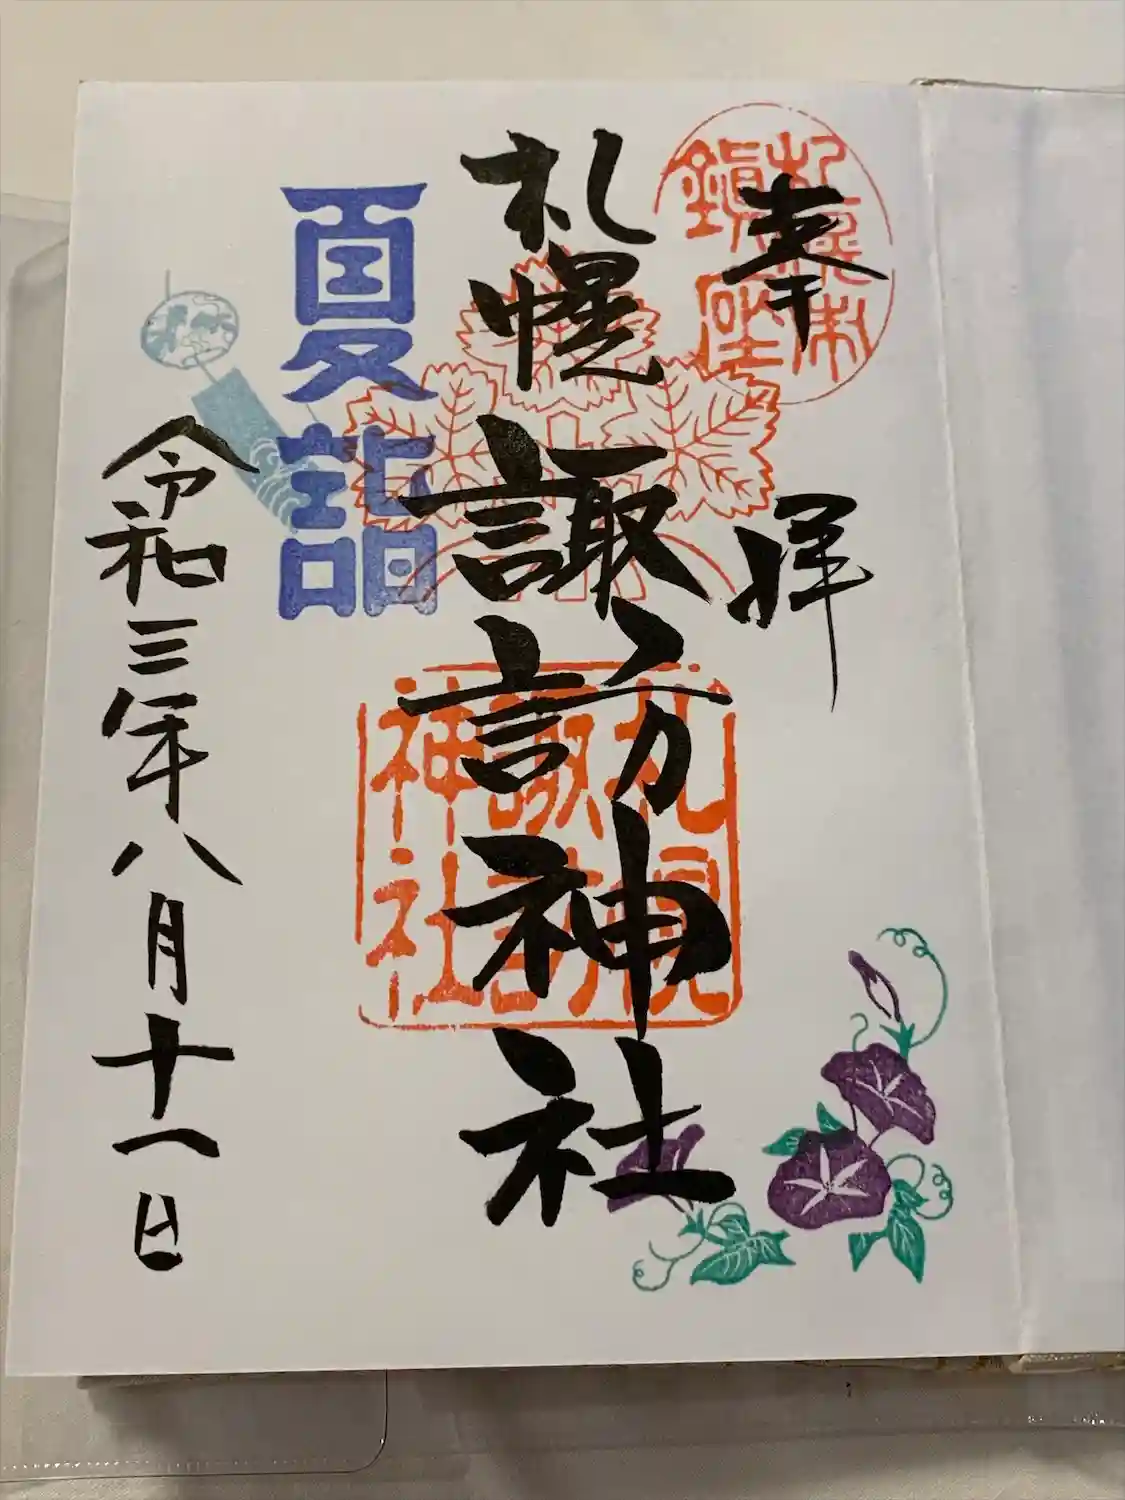 奉拝
札幌市
鎮座
札幌諏訪神社
札幌
諏訪
神社
夏詣
令和三年八月十一日